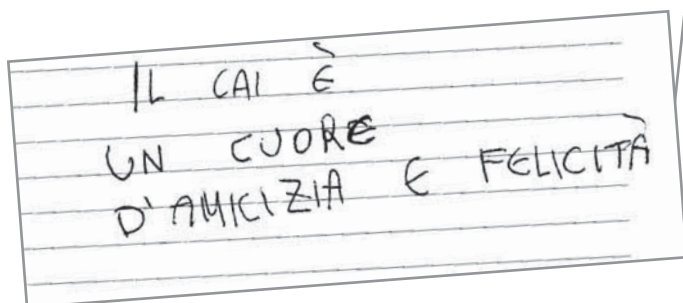 IL CAI È
UN CUORE
D'AMICIZIA E FELICITÀ